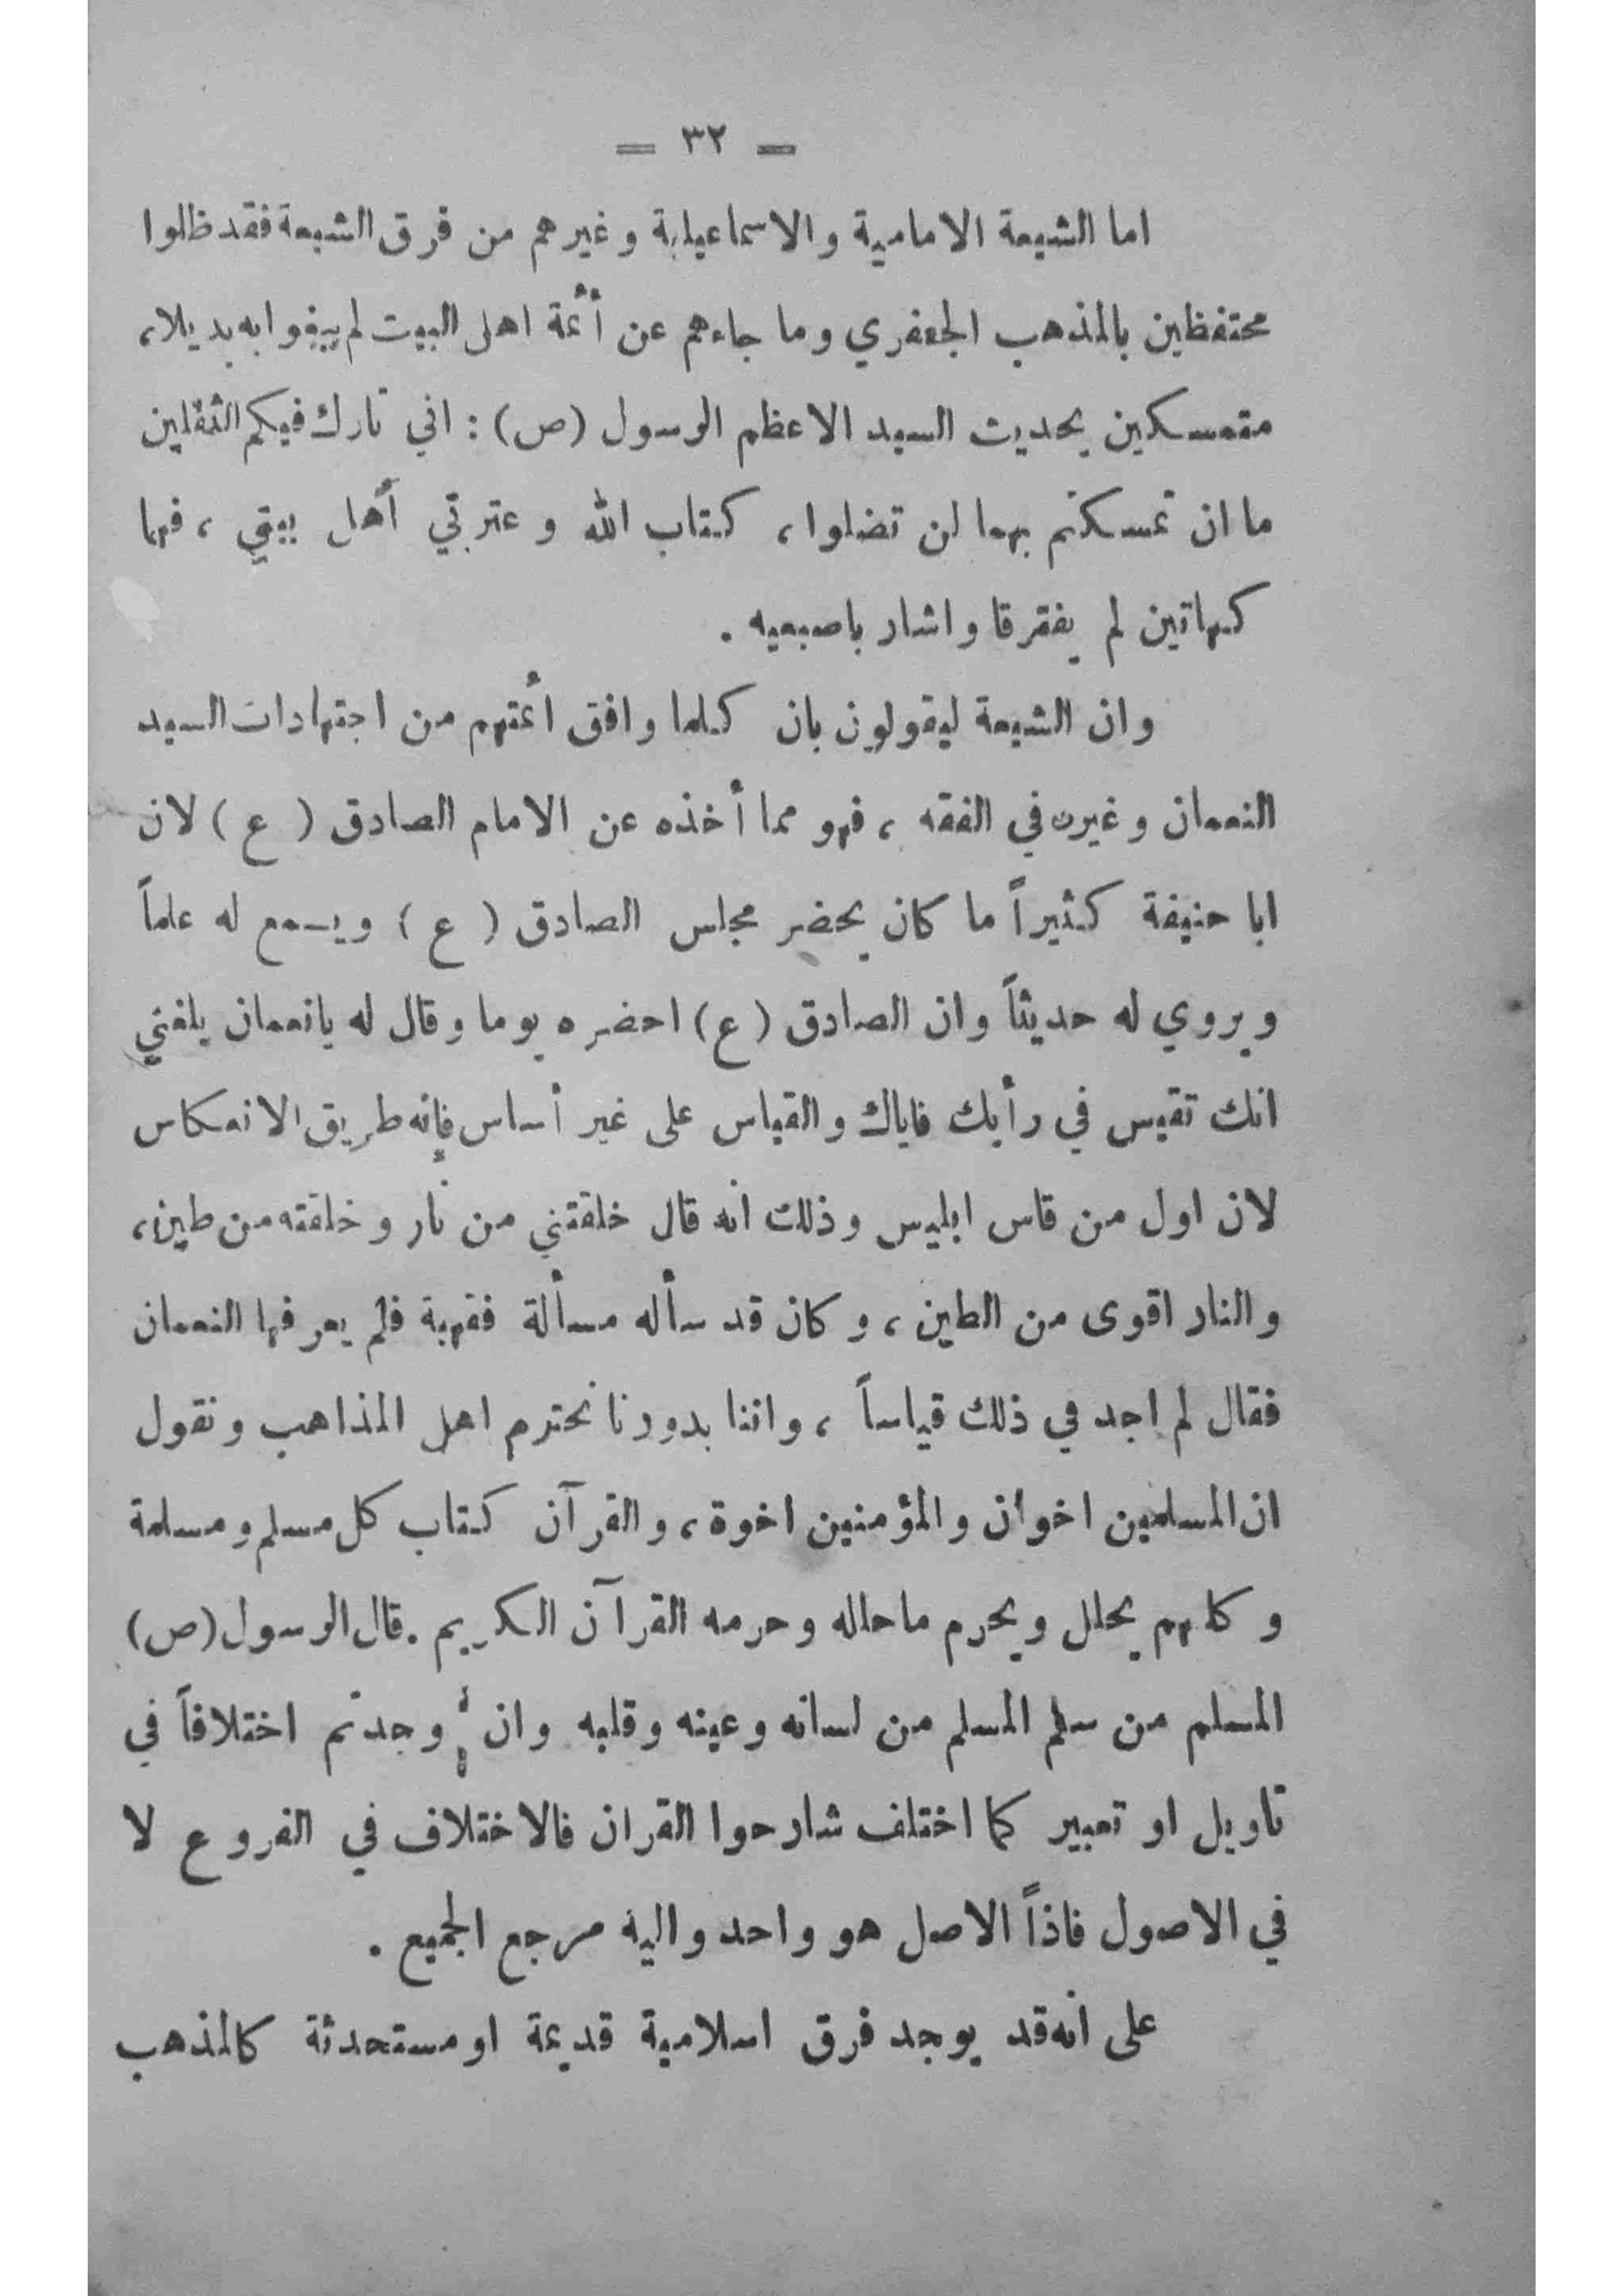 = ٣٢ =
اما الشيعة الامامية والاسماعيلية وغيرهم من فرق الشيعة فقد ظلوا
محتفظين بالمذهب الجعفري وما جاءهم عن أئمة اهل البيت لم يبغوا به بديلا،
متمسكين بحديث السيد الاعظم الرسول (ص) : اني تارك فيكم الثقلين
ما ان تمسكتم بهما لن تضلوا، كتاب الله وعترتي أهل بيتي ، فهما
كهاتين لم يفترقا واشار باصبعيه .
وان الشيعة ليقولون بان كلما وافق أئمتهم من اجتهادات السيد
النعمان وغيره في الفقه ، فهو مما أخذه عن الامام الصادق ( ع ) لان
ابا حنيفة كثيراً ما كان يحضر مجلس الصادق ( ع ) ويسمع له علماً
ويروي له حديثاً وان الصادق (ع) احضره يوما وقال له يانعمان بلغني
انك تقيس في رأيك فاياك والقياس على غير أساس فإنه طريق الانعكاس
لان اول من قاس ابليس وذلك انه قال خلقتني من نار وخلقته من طين،
والنار اقوى من الطين ، وكان قد سأله مسألة فقهية فلم يعرفها النعمان
فقال لم اجد في ذلك قياساً ، واننا بدورنا نحترم اهل المذاهب ونقول
ان المسلمين اخوان والمؤمنين اخوة، والقرآن كتاب كل مسلم ومسلمة
وكلهم يحلل ويحرم ماحلله وحرمه القرآن الكريم . قال الرسول (ص)
المسلم من سلم المسلم من لسانه وعينه وقلبه وان وجدتم اختلافاً في
تاويل او تعبير كما اختلف شارحوا القران فالاختلاف في الفروع لا
في الاصول فاذاً الاصل هو واحد واليه مرجع الجميع .
على انه قد يوجد فرق اسلامية قديمة او مستحدثة كالمذهب